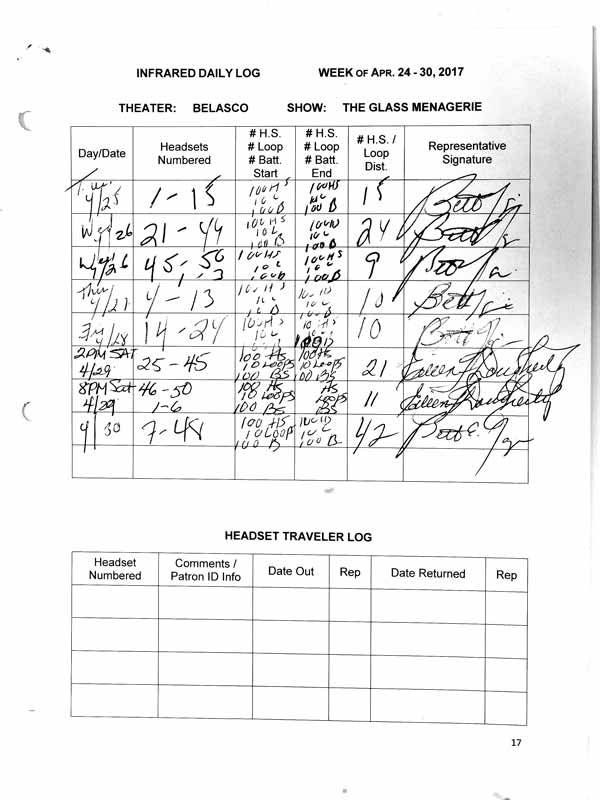 INFRARED DAILY LOG WEEK OF APR. 24 - 30, 2017
THEATER: BELASCO SHOW: THE GLASS MENAGERIE
Day/Date
Headsets
Numbered
# H.S.
# Loop
# Batt.
Start
# H.S.
# Loop
# Batt.
End
# H.S. /
Loop
Dist.
Representative
Signature
4/25
1 - 15
100 HS
10 L
100 B
100 HS
100 B
15
Wed 26
21 - 44
100 HS
10 L
100 B
10 L
100 B
24
Wed 4/26
45 - 50
1 - 3
100 HS
10 L
100 B
10 L
100 B
9
Thu
4/27
4 - 13
100 HS
10 L
10 L
100 B
10
4/28
14 - 24
100 HS
10 L
10
2PM SAT
4/29
25 - 45
100 HS
10 LOOPS
100 BS
100 HS
10 LOOPS
100 BS
21
Eileen Dougherty
8PM Sat
4/29
46 - 50
1-6
100 HS
10 LOOPS
100 BS
HS
LOOPS
BS
11
Eileen Dougherty
4/30
7-48
100 HS
10 LOOP
100 B
10 L
100 B
42
HEADSET TRAVELER LOG
Headset
Numbered
Comments /
Patron ID Info
Date Out
Rep
Date Returned
Rep
17